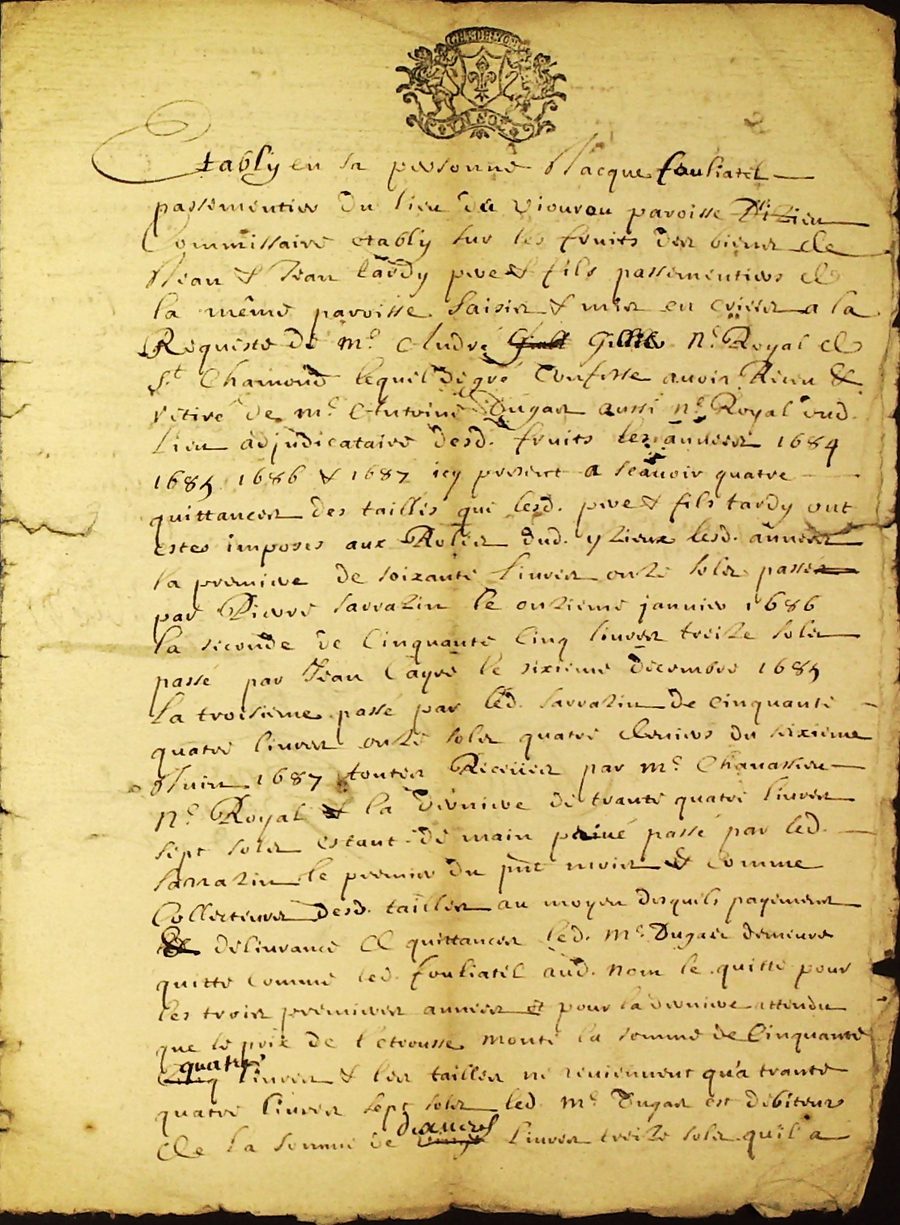 GN. DE LYON
UN SOL
Etably en sa personne Jacque fouliatel
passementier du lieu de viourou paroisse Dizieu
Commissaire etably sur les fruits des biens de
Jean & Jean tardy pere & fils passementiers de
la même paroisse saisis & mis en criées a la
Requeste de me. André Gillie ne. Royal de
St Chamond lequel de gré Confesse avoir Receu &
retiré de me. Antoine Dugas aussi ne. Royal dud.
Lieu adjudicataire desd. fruits les années 1684
1685 1686 & 1687 icy present a sçavoir quatre
quittances des tailles que lesd. pere & fils tardy ont
estes imposes aux Roles dud. yzieux lesd. années
la premiere de soixante Livres onze sols passe
par Pierre sarrazin le onzieme janvier 1686
la seconde de Cinquante Cinq livres treize sols
passé par Jean Cayre le sixieme decembre 1685
La troisieme passé par led. sarrazin de cinquante
quatre livres onze sols quatre deniers du seixieme
Juin 1687 toutes Receues par me. Chavassieu
ne. Royal & la derniere de trante quatre livres
sept sols estant de main privé passé par led.
sarrazin le premier du pnt mois & Comme
Collecteurs desd. tailles au moyen desquels payemens
& delivrance de quittances led. me. Dugas demeure
quitte Comme led. fouliatel aud. nom le quitte pour
les trois premieres années et pour la derniere attendu
que le prix de l'etrousse monte la somme de Cinquante
quatre livres & les tailles ne reviennent qu'a trante
quatre livres sept sols led. me. Dugas est debiteur
de la somme de livres treize sols qu'il a